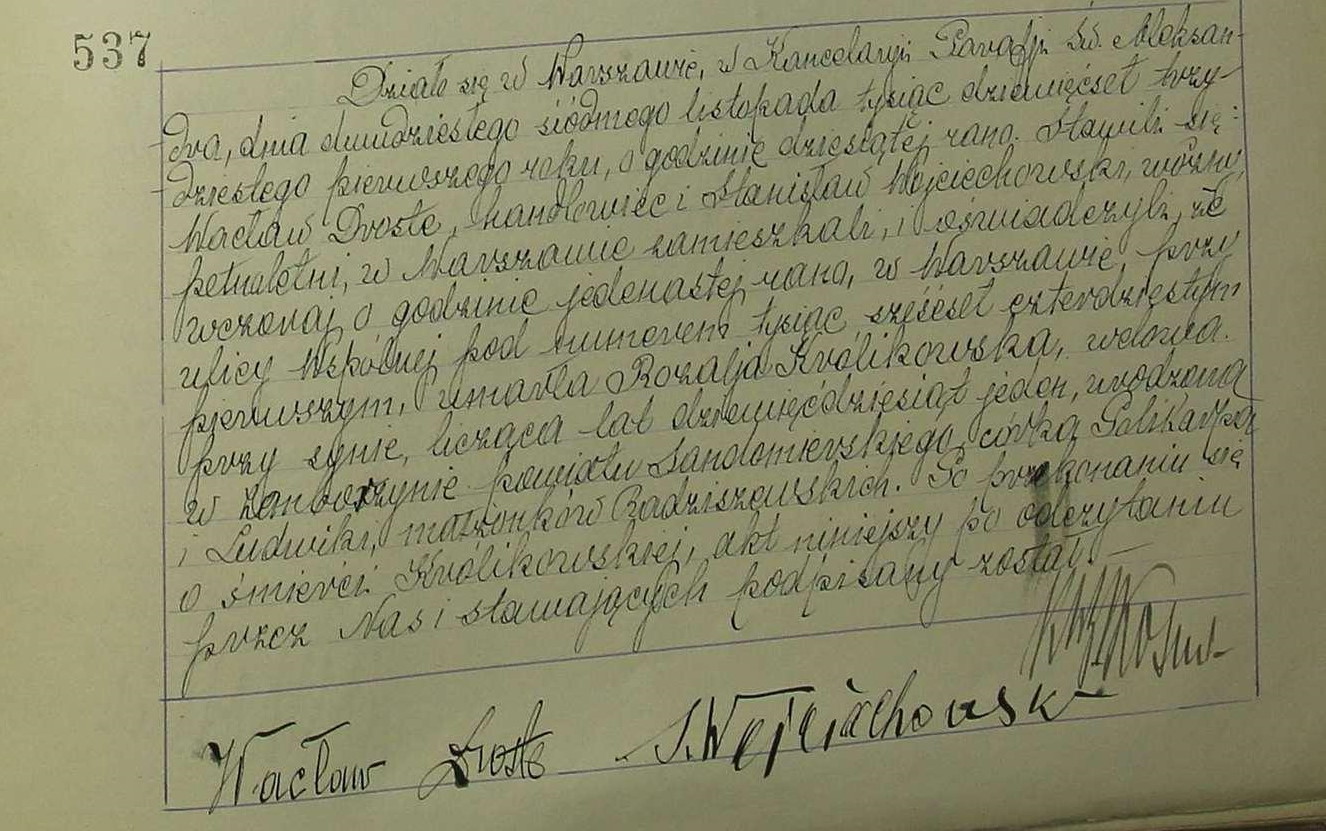 537
Działo się w Warszawie, w Kancelaryi Parafji Św. Aleksan-
dra, dnia dwudziestego siódmego listopada tysiąc dziewięćset trzy-
dziestego pierwszego roku, o godzinie dziesiątej rano. Stawili się:
Wacław Droste, handlowiec i Stanisław Wojciechowski, woźny,
pełnoletni, w Warszawie zamieszkali, i oświadczyli, że
wczoraj o godzinie jedenastej rano, w Warszawie przy
ulicy Wspólnej pod numerem tysiąc sześćset czterdziestym
pierwszym, umarła Rozalja Królikowska, wdowa.
przy synie, licząca lat dziewięćdziesiąt jeden, urodzona
w powiatu Sandomierskiego, córka Polikarpa
i Ludwiki, małżonków Radziszewskich. Po przekonaniu się
o śmierci Królikowskiej, akt niniejszy po odczytaniu
przez Nas i stawających podpisany został. —
Wacław Droste S. Wojciechowski